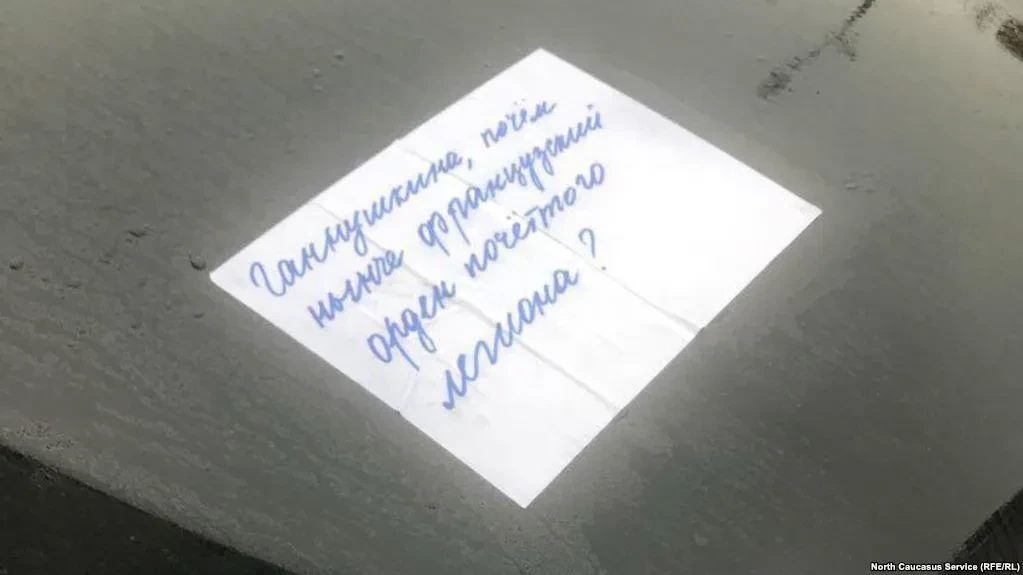 Ганнушкина, почём
нынче французский
орден почётного
легиона?
North Caucasus Service (RFE/RL)